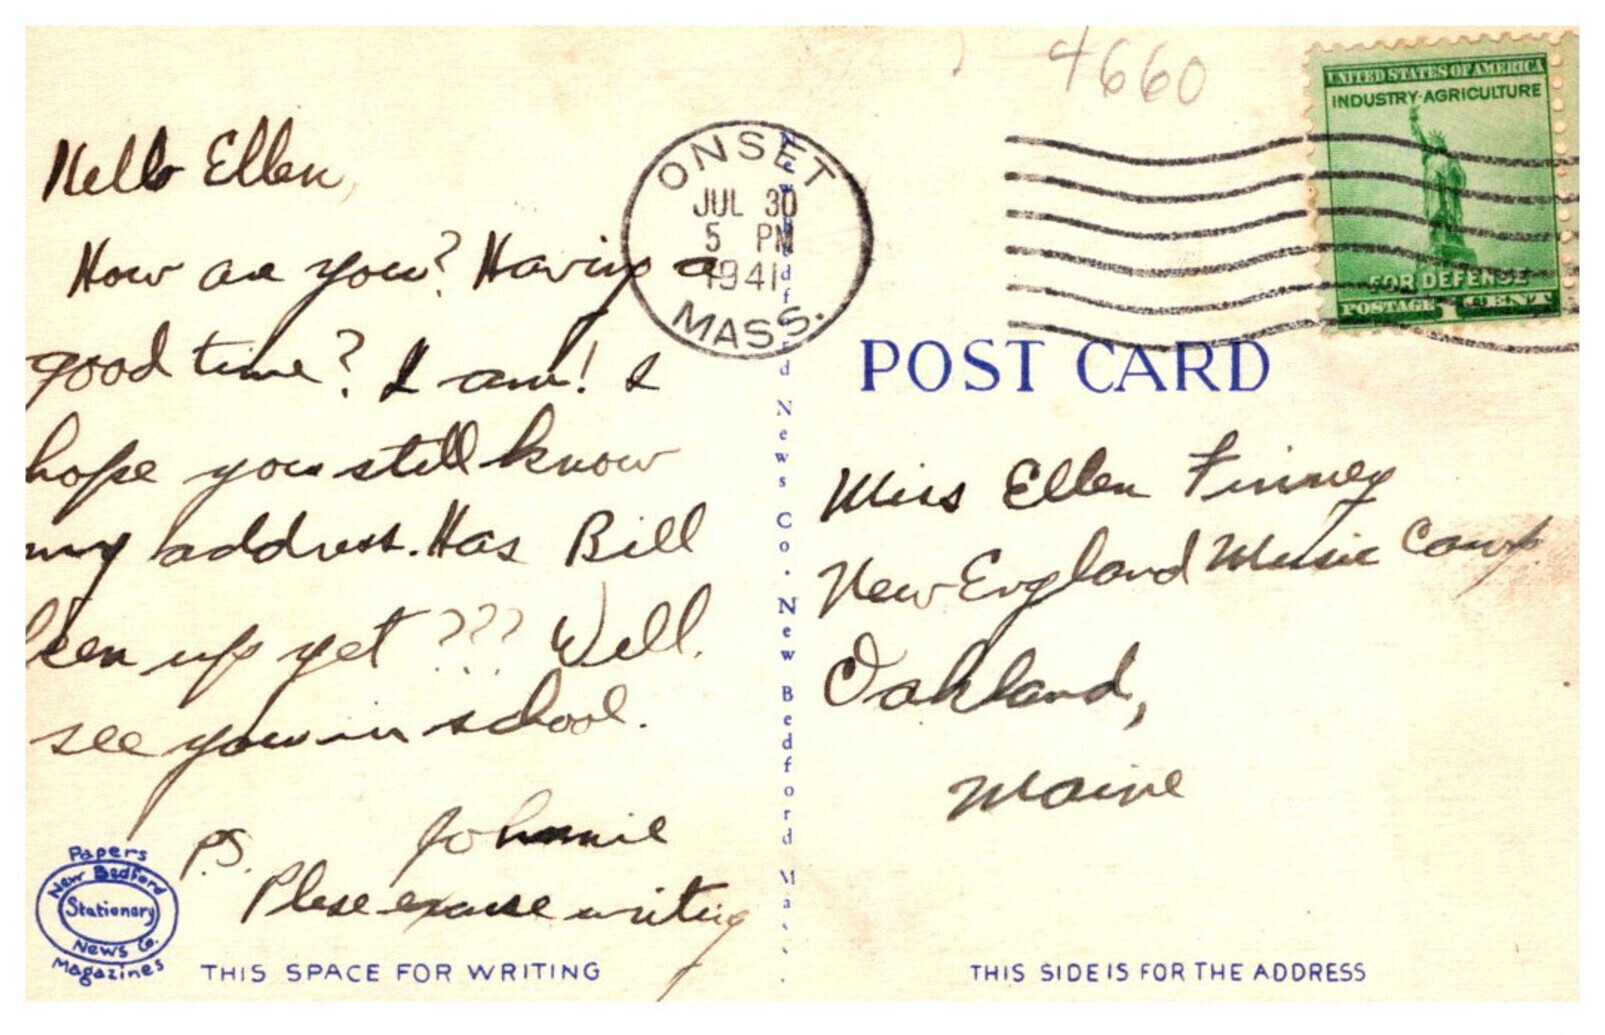 4660
UNITED STATES OF AMERICA
INDUSTRY·AGRICULTURE
FOR DEFENSE
POSTAGE 1 CENT
ONSET
JUL 30
5 PM
1941
MASS.
Hello Ellen,
How are you? Having a
good time? I am! I
hope you still know
my address. Has Bill
been up yet ??? Well.
see you in school.
Johnnie
P.S.
Plese excuse writing
POST CARD
Miss Ellen Finney
New England Music Camp
Oakland,
Maine
New Bedford News Co. New Bedford Mass.
Papers
New Bedford
Stationary
News Co.
Magazines
THIS SPACE FOR WRITING
THIS SIDE IS FOR THE ADDRESS